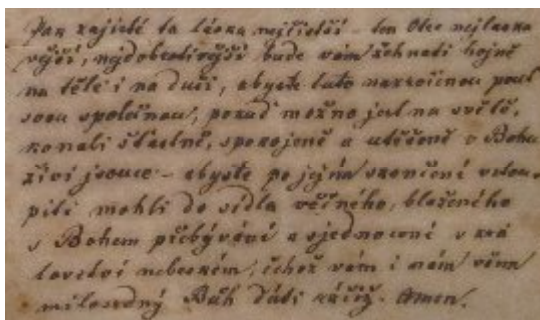 Pak zajisté ta láska nejčistší – ten Otec nejlaska
vější, nejdobrotivější bude vám žehnati hojně
na těle i na duši, abyste tuto pout
svou společnou, pokud možno jest na světě,
konali šťastně, spokojeně a utěšeně v Bohu
živi jsouce – abyste po jejím skončení vstou-
piti mohli do sídla věčného, blaženého
s Bohem přebývání a sjednocení v krá
lovství nebeském, čehož vám i nám všem
milosrdný Bůh dáti rácíž. Amen.